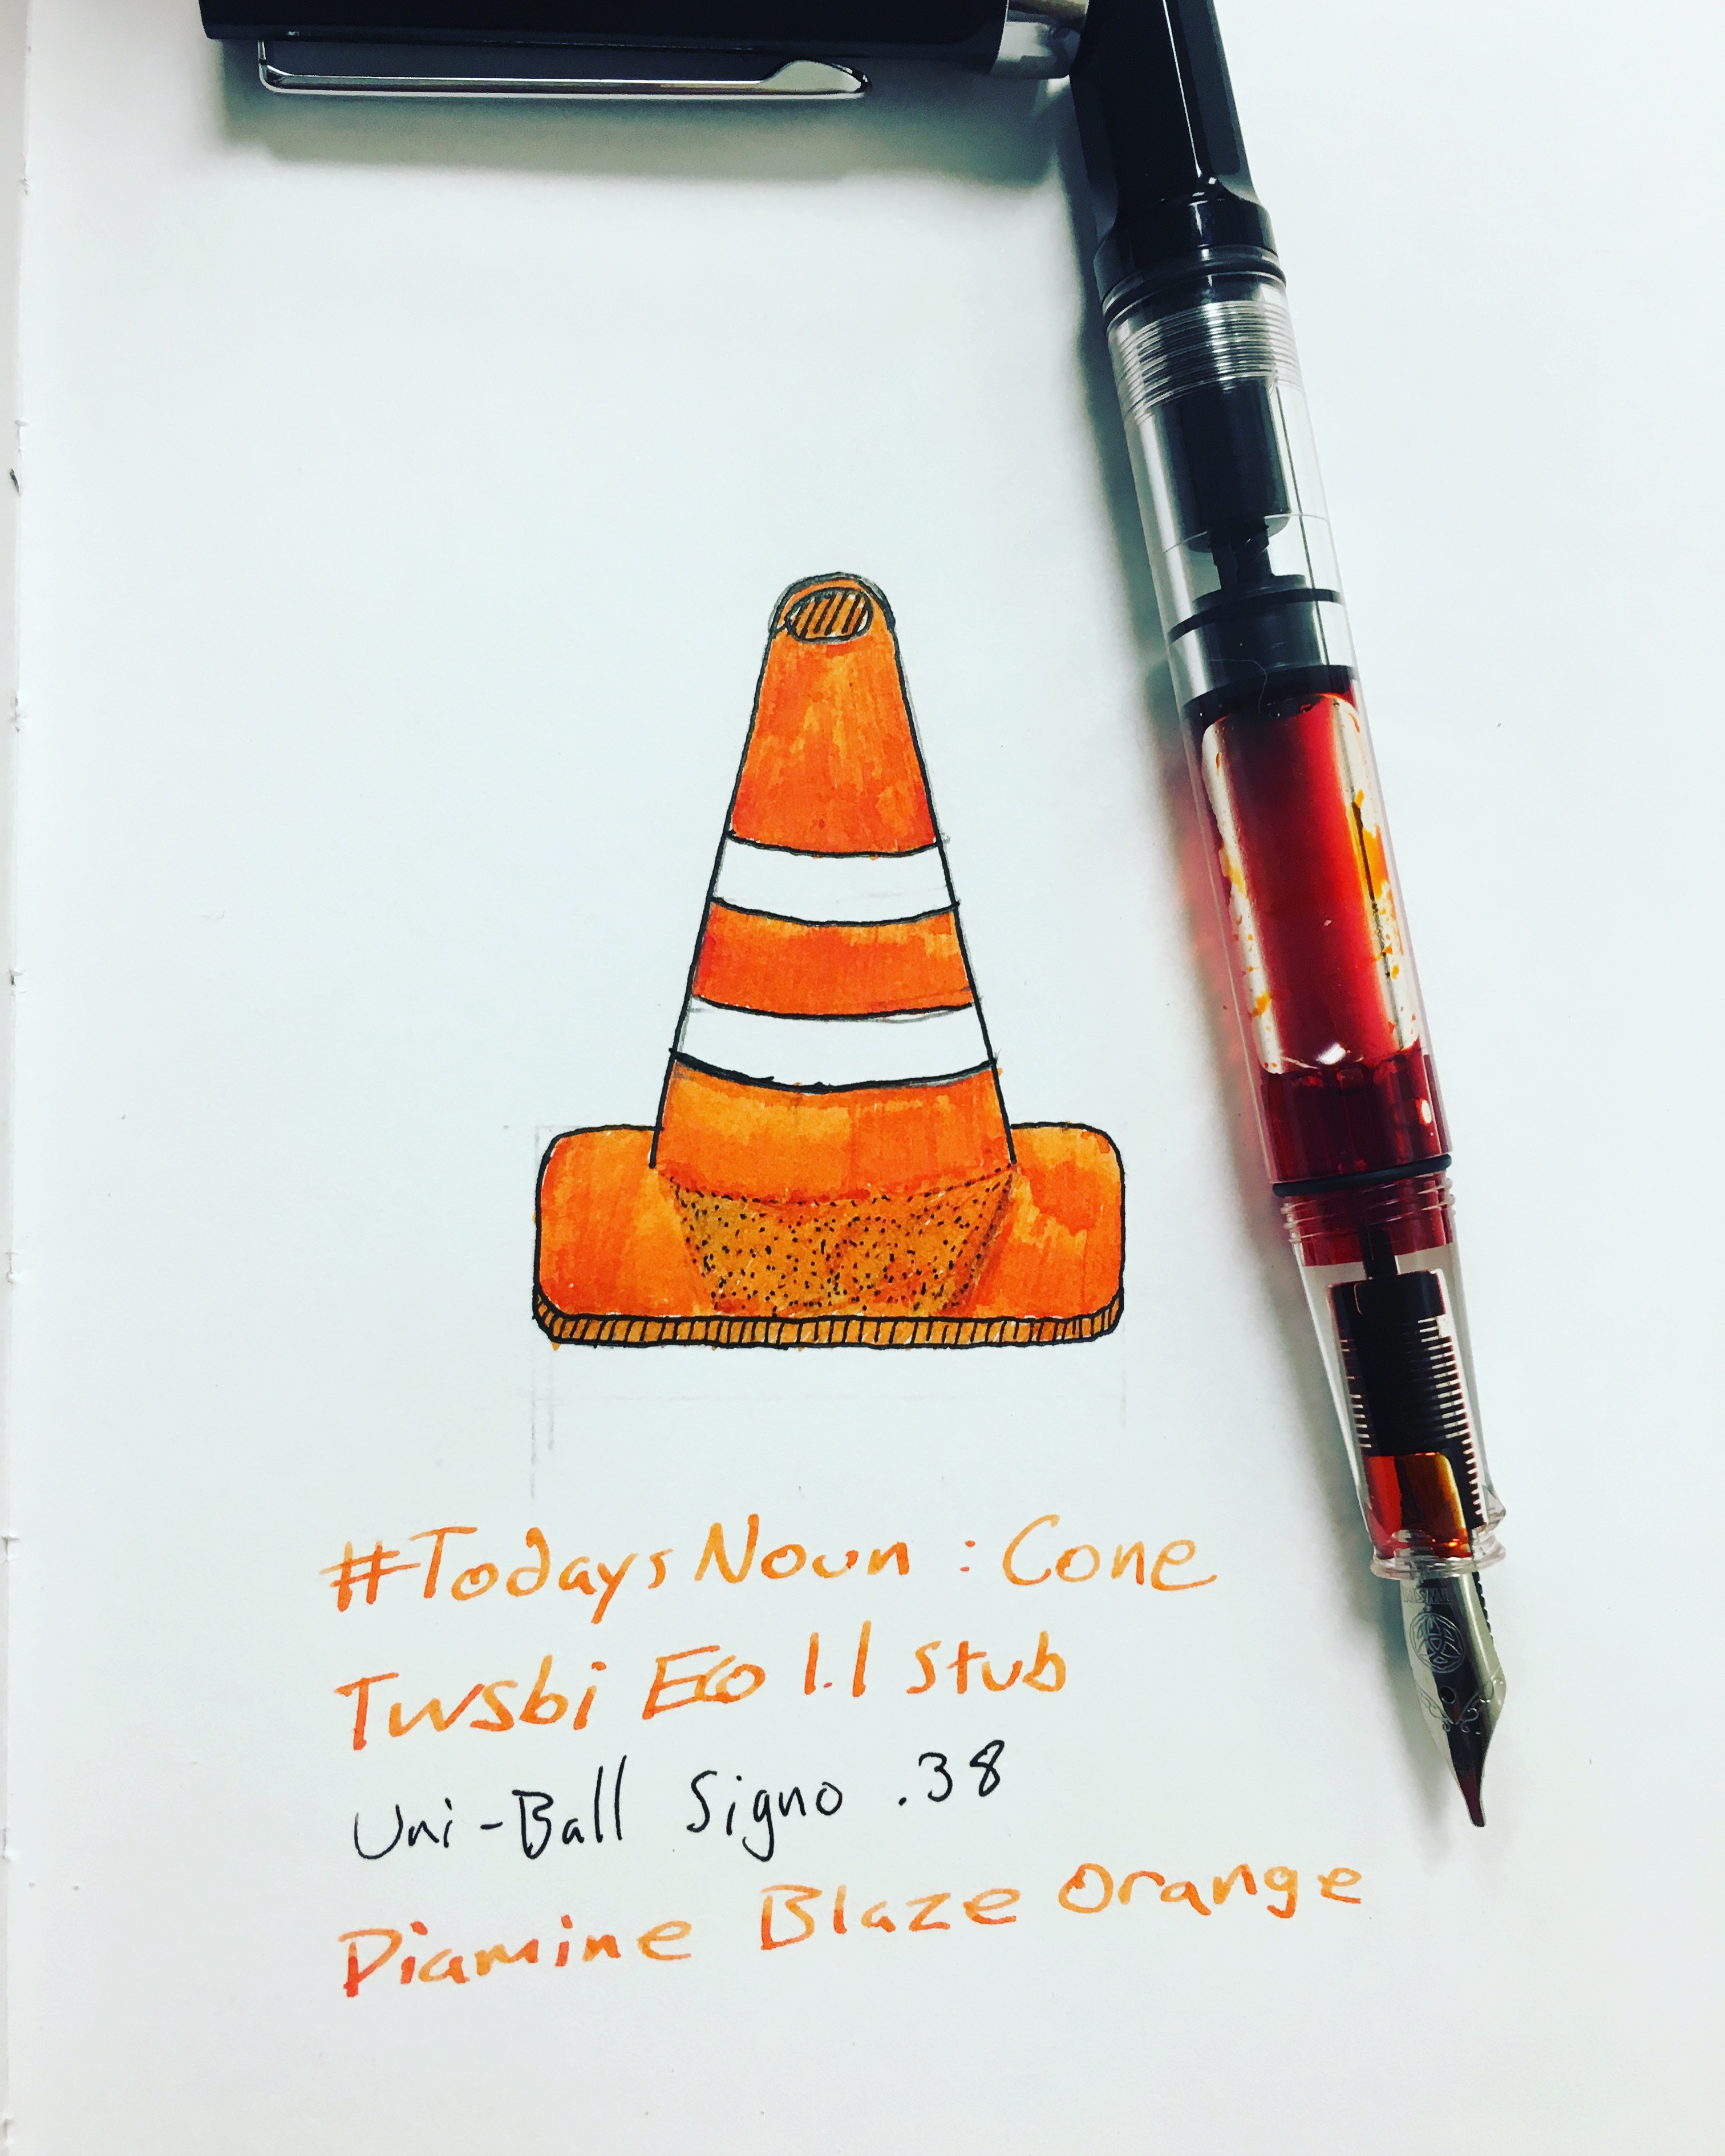 #TodaysNoun : Cone
Twsbi Eco 1.1 stub
Uni-Ball Signo .38
Diamine Blaze Orange
TWSBI